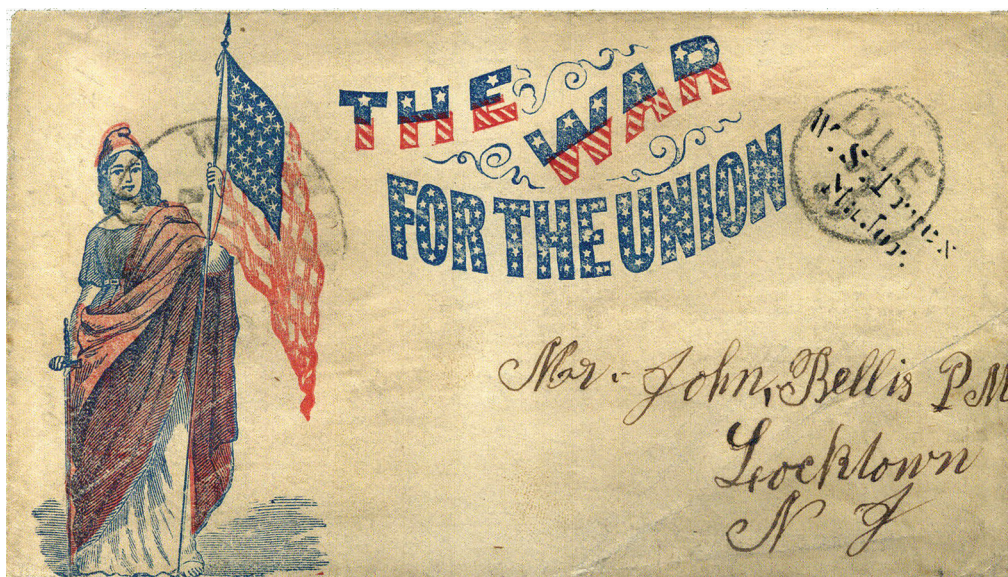 THE WAR
FOR THE UNION
DUE
Mr. John, Bellis P M
Locktown
N J